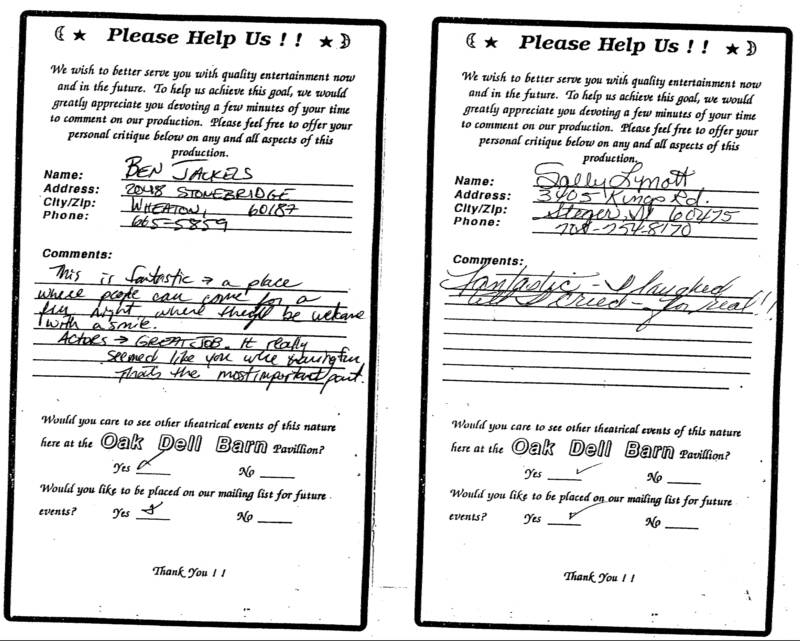 Please Help Us ! !
We wish to better serve you with quality entertainment now
and in the future. To help us achieve this goal, we would
greatly appreciate you devoting a few minutes of your time
to comment on our production. Please feel free to offer your
personal critique below on any and all aspects of this
production.
Name: BEN JACKELS
Address: 2048 STONEBRIDGE
City/Zip: WHEATON, 60187
Phone: 665-5859
Comments:
This is fantastic → a place
where people can come for a
fun night where they'll be welcome
with a smile.
ACTORS → GREAT JOB. It really
seemed like you were having fun,
thats the most important part.
Would you care to see other theatrical events of this nature
here at the Oak Dell Barn Pavillion?
Yes ✓ No
Would you like to be placed on our mailing list for future
events? Yes No
Thank You ! !
Please Help Us ! !
We wish to better serve you with quality entertainment now
and in the future. To help us achieve this goal, we would
greatly appreciate you devoting a few minutes of your time
to comment on our production. Please feel free to offer your
personal critique below on any and all aspects of this
production.
Name: Sally Lynott
Address: 3405 Kings Rd.
City/Zip: Steger, 60475
Phone: 708-754-8170
Comments:
Fantastic - I laughed
till I cried - for real!!
Would you care to see other theatrical events of this nature
here at the Oak Dell Barn Pavillion?
Yes ✓ No
Would you like to be placed on our mailing list for future
events? Yes ✓ No
Thank You ! !